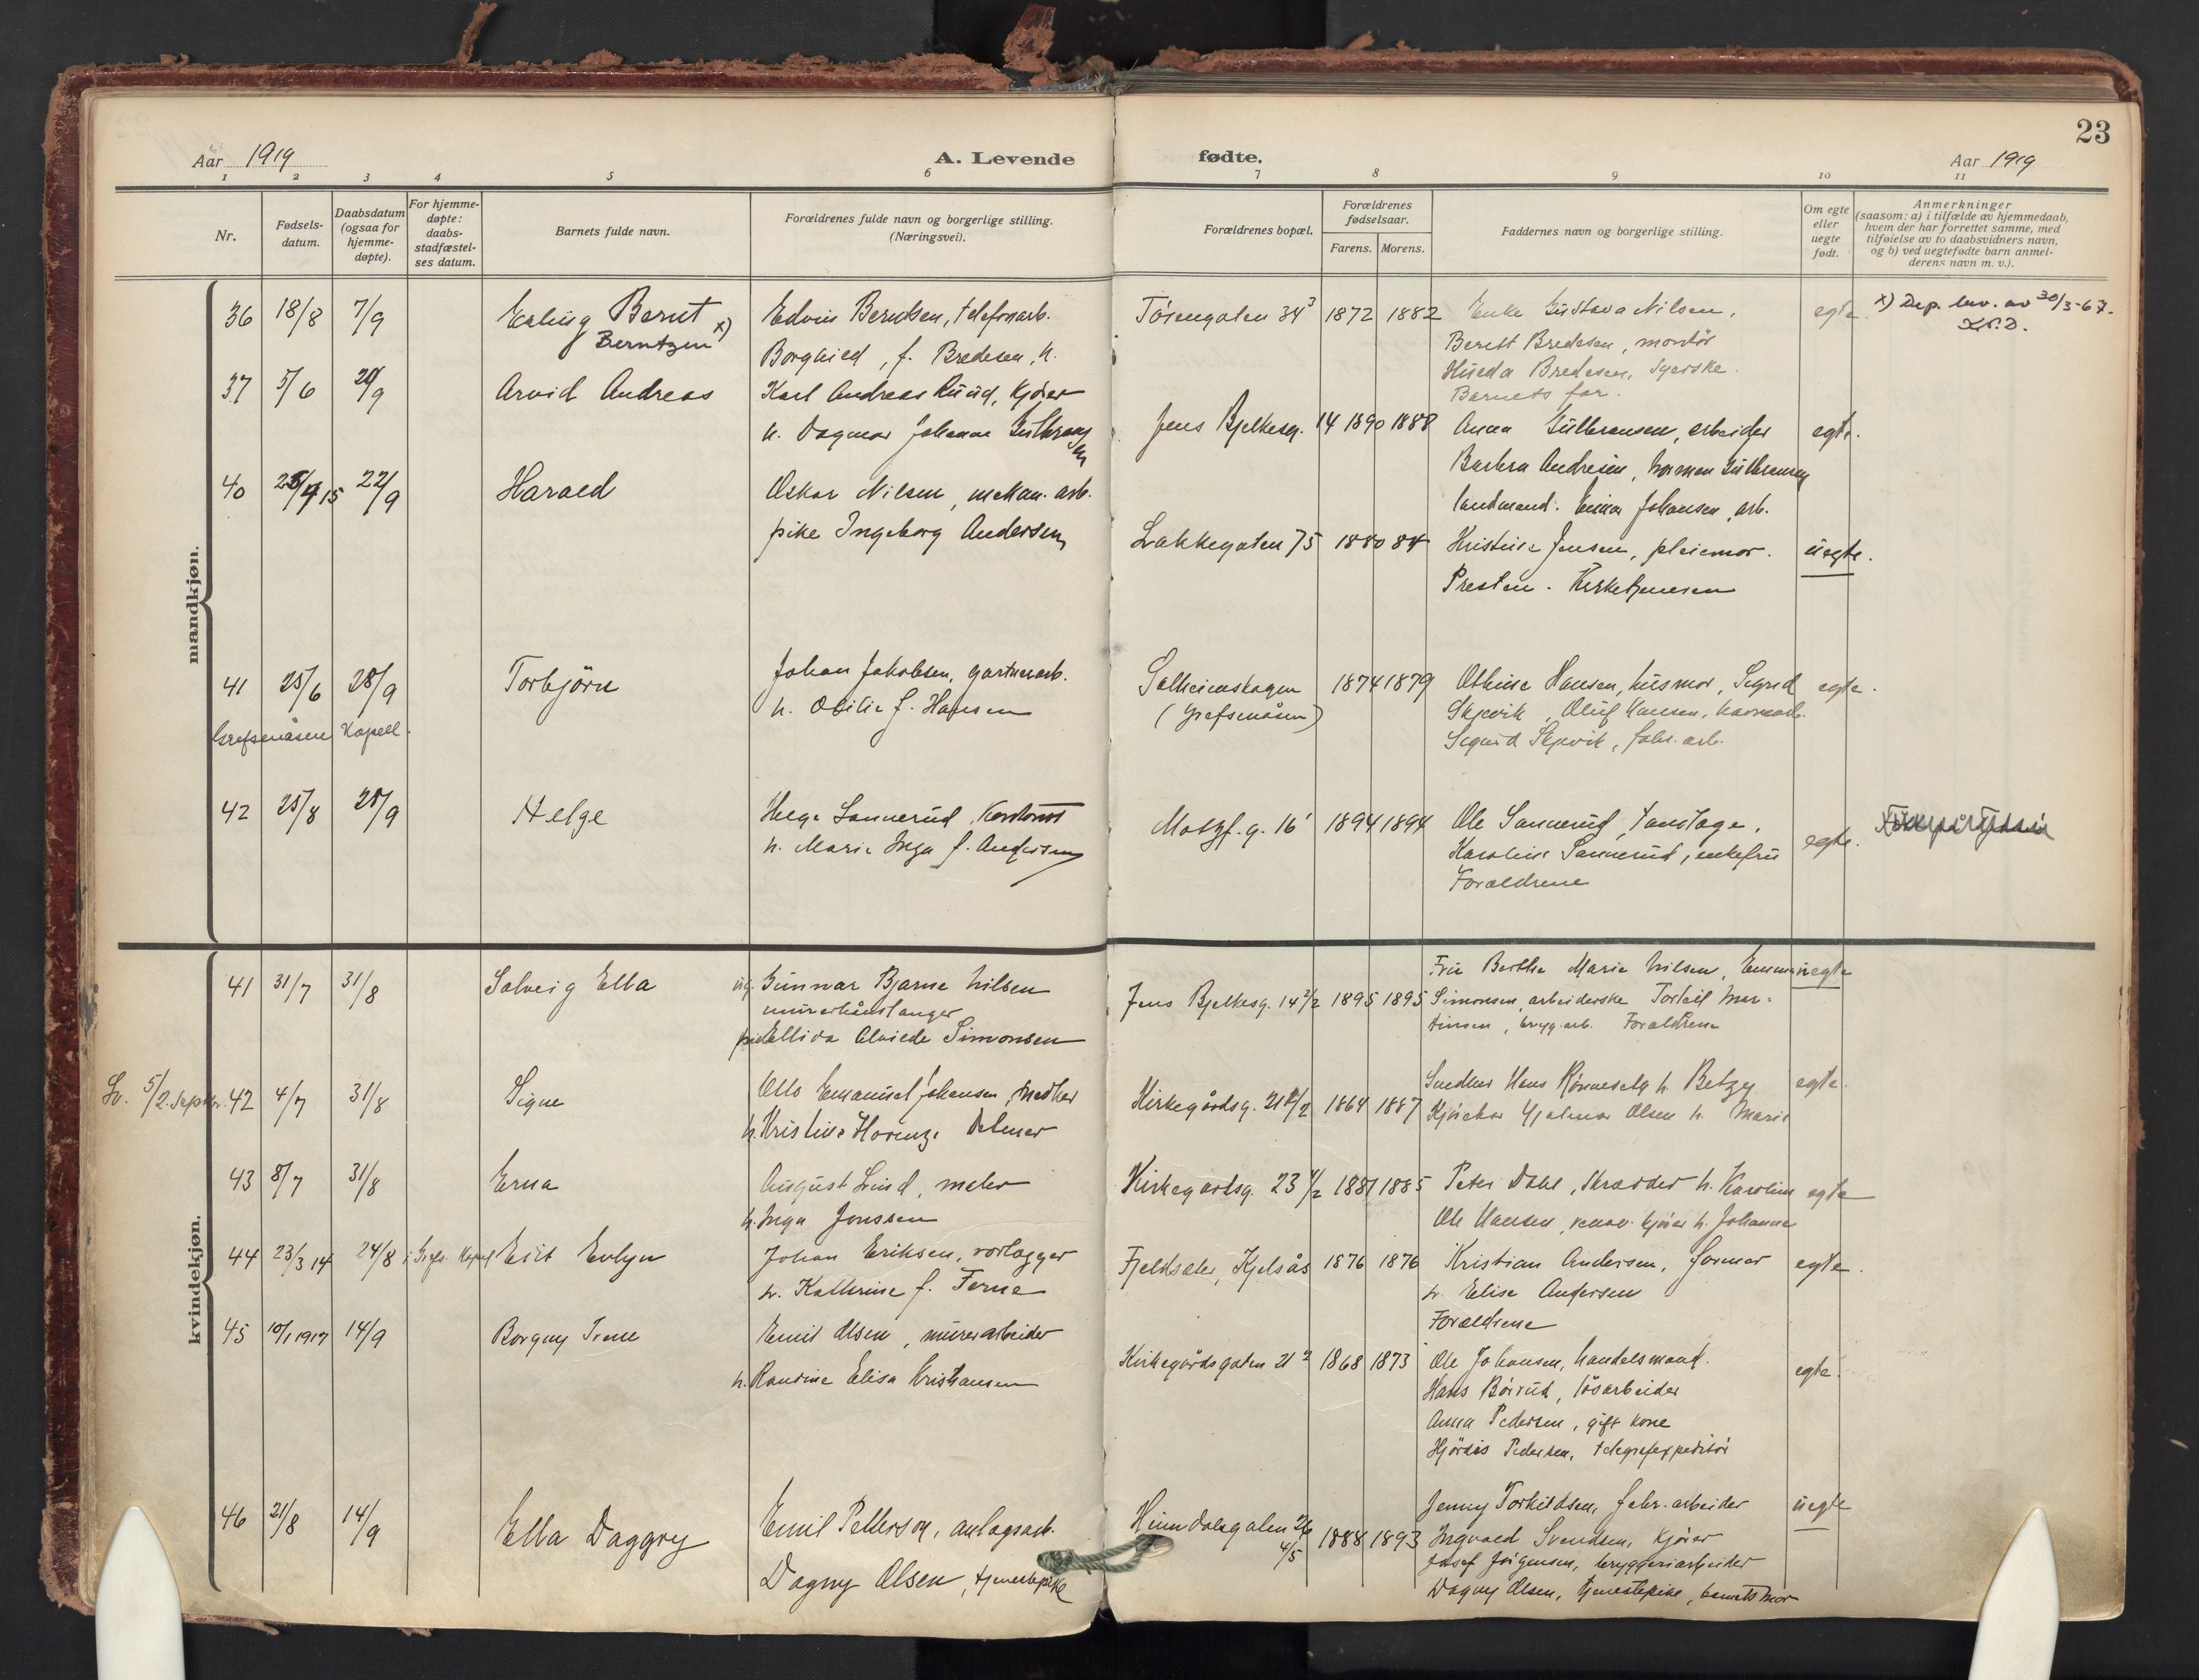 23
Aar 1919 A. Levende fødte. Aar 1919
1 2 3 4 5 6 7 8 9 10 11
Nr.
Fødsels-
datum.
Daabsdatum
(ogsaa for
hjemme-
døpte).
For hjemme-
døpte:
daabs-
stadfæstel-
ses datum.
Barnets fulde navn.
Forældrenes fulde navn og borgerlige stilling.
(Næringsvei).
Forældrenes bopæl.
Forældrenes
fødselsaar.
Farens. Morens.
Faddernes navn og borgerlige stilling.
Om egte
eller
uegte
født.
Anmerkninger
(saasom: a) i tilfælde av hjemmedaab,
hvem der har forrettet samme, med
tilføielse av to daabsvidners navn,
og b) ved uegtefødte barn anmel-
derens navn m. v.).
mandkjøn.
36 18/8 7/9 Erling Bernt x) Edvin Berntsen, telefonarb. Tøiengaten 34³ 1872 1882 Enke Gustava Nilsen, egte x) Dep. bev. av 30/3-67.
Berntzen
Borghild, f. Bredesen, h. Berett Bredesen, montør
Hilda Bredesen, Syerske.
Barnets far.
37 5/6 20/9 Arvid Andreas Karl Andreas Ruud, kjører
h. Dagmar Johanne Gulbransen Jens Bjelkesg. 14 1890 1888 Anna Gulbransen, arbeider egte.
Barbra Andresen, Norman Gulbransen
landmand. Einar Johansen, arb.
40 15 22/9 Harald Oskar Nilsen, mekan. arb.
pike Ingeborg Andersen Lakkegaten 75 1880 84 Kristine Jensen, pleiemor. uegte.
Presten. Kirketjeneren
41 25/6 28/9 Torbjörn Johan Jakobsen, gartnerarb.
h. Otilie f. Hansen Solheimskogen 1874 1879 Othine Hansen, husmor, Sigrid egte.
Grefsenåsen Kapell. (Grefsenåsen) Skjevik, Oluf Hansen, havnearb.
Sigurd Skjevik, fabr. arb.
42 25/8 28/9 Helge Helge Sannerud, Kontorist Motzf. g. 16¹ 1894 1894 Ole Sannerud, egte.
h. Marie Inga f. Andersen Karoline Sannerud, enkefru
Forældrene
kvindekjøn.
41 31/7 31/8 Solveig Ella ug. Gunnar Bjarne Nilsen Jens Bjelkesg. 14 2/2 1895 1895 Fru Berthe Marie Nilsen, Emma uegte
murerhåndlanger Simonsen, arbeiderske Torleif Mar-
Ellida Alvilde Simonsen tinsen, brygg.arb. Forældrene
5/2. Septbr. 42 4/7 31/8 Signe Otto Emanuel Johansen, snedker Kirkegårdsg. 1864 1887 Snedker Hans h. Betzy egte.
h. Kristine Horenze Delmer Hjalmar Olsen h. Marie
43 8/7 31/8 Erna August Lind, maler Kirkegårdsg. 23 4/2 1881 1885 Peter Dahl, skrædder h. Karoline egte
h. Inga Jonssen Ole Hansen, renov. kjører h. Johanne
44 23/3 14 24/8 i Grefs. Kapel Elit Evlyn Johan Eriksen, rørlægger Fjeldsæter, Kjelsås 1876 1876 Kristian Andersen, former egte.
h. Kathrine f. Ferne h. Elise Andersen
Forældrene
45 10/1 1917 14/9 Borgny Irene Emil Olsen, murerarbeider
h. Randine Elise Kristiansen Kirkegårdsgaten 21² 1868 1873 Ole Johansen, handelsmand. egte.
Hans Börrud, løsarbeider
Anna Pedersen, gift kone
Hjördis Pedersen, telegrafexpeditör
46 21/8 14/9 Ella Daggry Emil Petterson, anlagsarb. Heimdalsgaten 26 4/5 1888 1893 Jenny Torkildsen, fabr. arbeider uegte
Ingvald Svendsen, kjører
Josef Jørgensen, bryggeriarbeider
Dagny Olsen, tjenestepike Dagny Olsen, tjenestepike, barnets mor